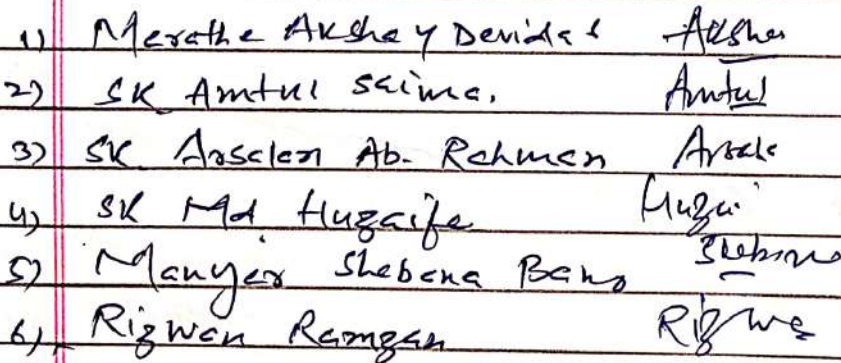 1) Marathe Akshay Devidas Akshay
2) SK Amtul Saima. Amtul
3) SK Arsalan Ab. Rahman Arsala
4) SK Md Huzaifa Huzai
5) Manyar Shabana Bano Shabana
6) Rizwan Ramzan Rizwa